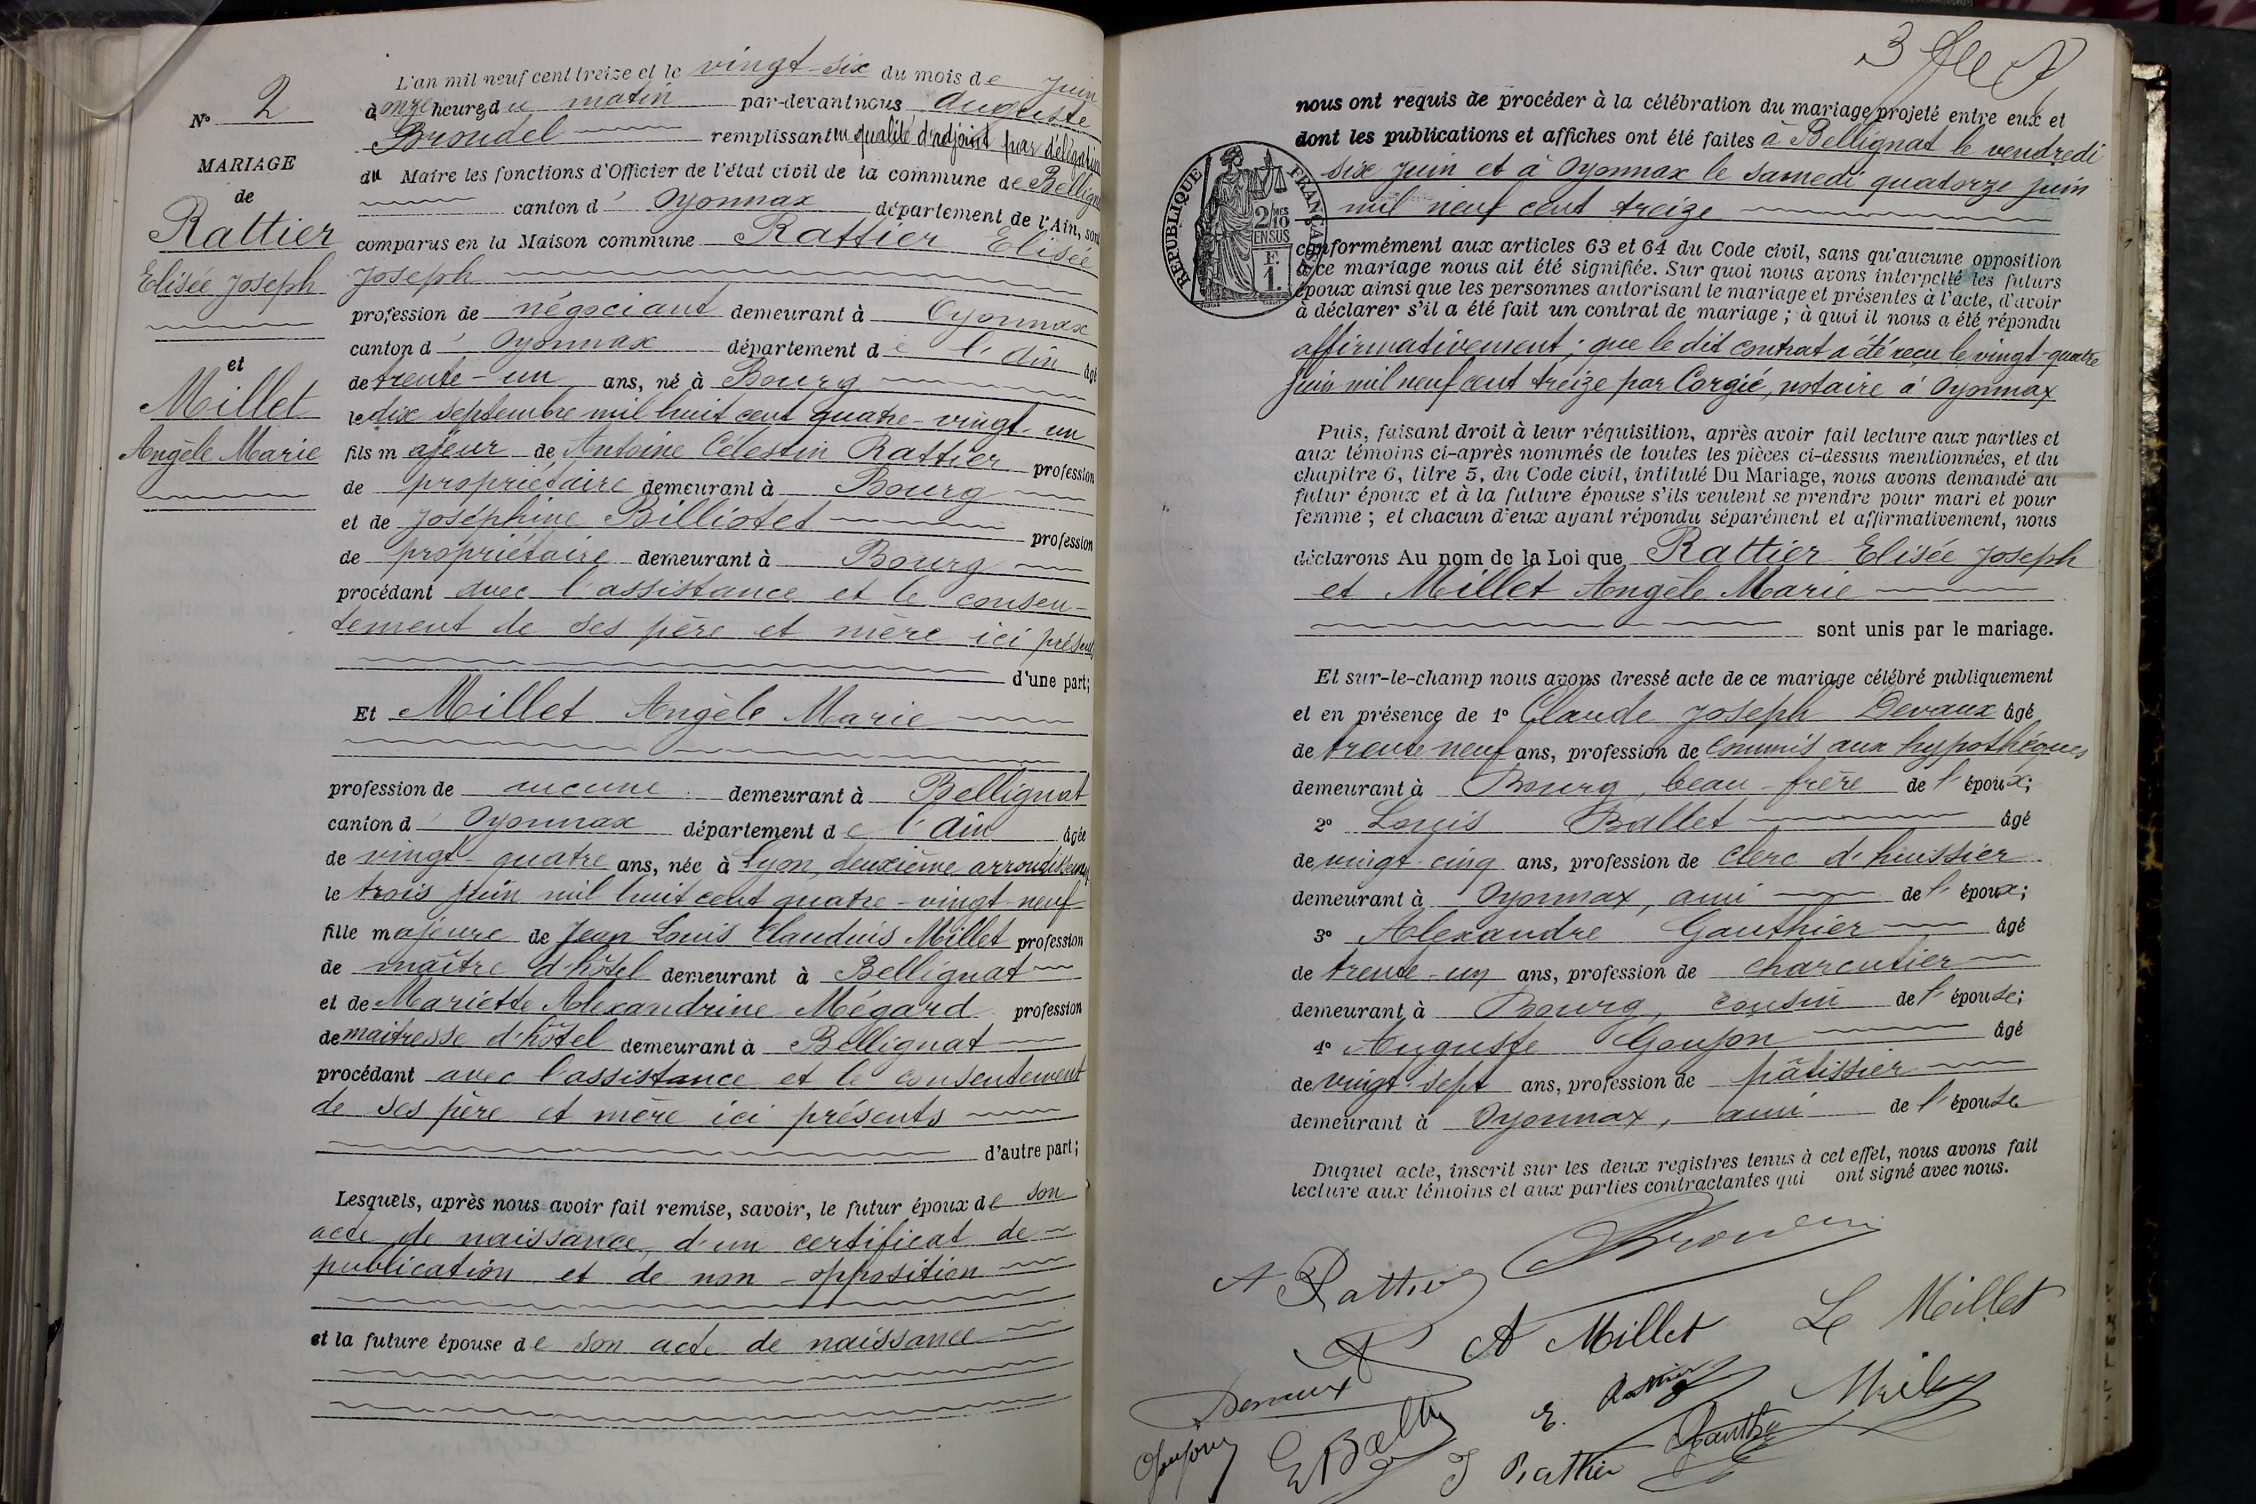 N° 2
MARIAGE
de
Rattier
Elisée Joseph
et
Millet
Angèle Marie
L'an mil neuf cent treize et le vingt-six du mois de Juin
à onze heures du matin par-devant nous Auguste
Broudel remplissant en qualité d'adjoint par délégation
du Maire les fonctions d'Officier de l'état civil de la commune de Bellignat
canton d'Oyonnax département de l'Ain, sont
comparus en la Maison commune Rattier Elisée
Joseph
profession de négociant demeurant à Oyonnax
canton d'Oyonnax département de l'Ain âgé
de trente-un ans, né à Bourg
le dix septembre mil huit cent quatre-vingt-un
fils majeur de Antoine Célestin Rattier profession
de propriétaire demeurant à Bourg
et de Joséphine Billiotet profession
de propriétaire demeurant à Bourg
procédant avec l'assistance et le consen-
tement de ses père et mère ici présents
d'une part;
Et Millet Angèle Marie
profession de aucune demeurant à Bellignat
canton d'Oyonnax département de l'Ain âgée
de vingt-quatre ans, née à Lyon, deuxième arrondissement
le trois juin mil huit cent quatre-vingt-neuf
fille majeure de Jean Louis Claudius Millet profession
de maître d'hôtel demeurant à Bellignat
et de Mariette Alexandrine Mégard profession
de maîtresse d'hôtel demeurant à Bellignat
procédant avec l'assistance et le consentement
de ses père et mère ici présents
d'autre part;
Lesquels, après nous avoir fait remise, savoir, le futur époux de son
acte de naissance, d'un certificat de
publication et de non-opposition
et la future épouse de son acte de naissance
3
nous ont requis de procéder à la célébration du mariage projeté entre eux et
dont les publications et affiches ont été faites à Bellignat le vendredi
six juin et à Oyonnax le samedi quatorze juin
mil neuf cent treize
RÉPUBLIQUE FRANÇAISE
2/10 MES
EN SUS
F.
1.
conformément aux articles 63 et 64 du Code civil, sans qu'aucune opposition
à ce mariage nous ait été signifiée. Sur quoi nous avons interpellé les futurs
époux ainsi que les personnes autorisant le mariage et présentes à l'acte, d'avoir
à déclarer s'il a été fait un contrat de mariage; à quoi il nous a été répondu
affirmativement; que le dit contrat a été reçu le vingt-quatre
juin mil neuf cent treize par Corgié, notaire à Oyonnax
Puis, faisant droit à leur réquisition, après avoir fait lecture aux parties et
aux témoins ci-après nommés de toutes les pièces ci-dessus mentionnées, et du
chapitre 6, titre 5, du Code civil, intitulé Du Mariage, nous avons demandé au
futur époux et à la future épouse s'ils veulent se prendre pour mari et pour
femme; et chacun d'eux ayant répondu séparément et affirmativement, nous
déclarons Au nom de la Loi que Rattier Elisée Joseph
et Millet Angèle Marie
sont unis par le mariage.
Et sur-le-champ nous avons dressé acte de ce mariage célébré publiquement
et en présence de 1° Claude Joseph Devaux âgé
de trente neuf ans, profession de commis aux hypothèques
demeurant à Bourg, beau-frère de l'époux;
2° Louis Ballet âgé
de vingt-cinq ans, profession de clerc d'huissier
demeurant à Oyonnax, ami de l'époux;
3° Alexandre Gauthier âgé
de trente-un ans, profession de charcutier
demeurant à Bourg, cousin de l'épouse;
4° Auguste Goujon âgé
de vingt-sept ans, profession de pâtissier
demeurant à Oyonnax, ami de l'épouse
Duquel acte, inscrit sur les deux registres tenus à cet effet, nous avons fait
lecture aux témoins et aux parties contractantes qui ont signé avec nous.
A Rattier
A Millet L Millet
Devaux
E. Rattier
Goujon
J Rattier Gauthier